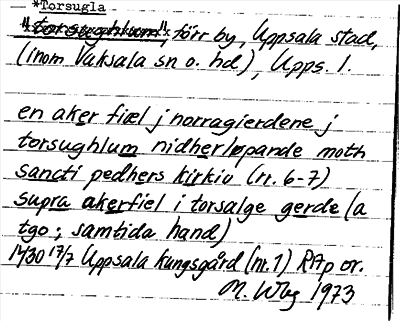 *Torsugla
"torsughlum", förr by, Uppsala stad,
(inom Vaksala sn o. hd), Upps. l.
en aker fiæl j norragierdene j
torsughlum nidherløpande moth
sancti pedhers kirkio (r. 6-7)
supra akerfiel i torsalge gerde (a
tgo; samtida hand)
1430 17/7 Uppsala kungsgård (nr. 1) RAp or.
M. Wbg 1973